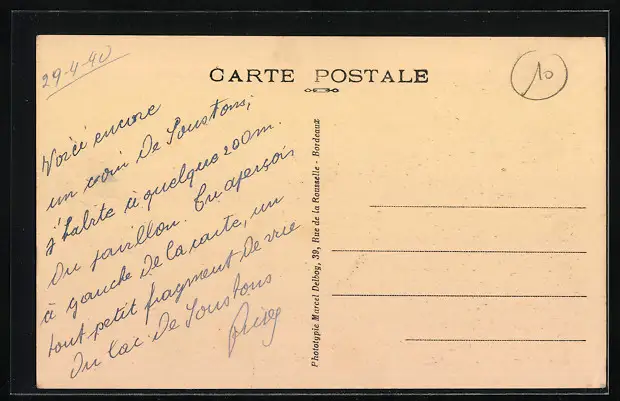 29-4-40
CARTE POSTALE
10
Voici encore
un coin De Soustons,
j'habite à quelque 200m.
Du pavillon. Tu aperçois
à gauche De la carte, un
tout petit fragment De vue
Du lac De Soustons
Phototypie Marcel Delboy, 39, Rue de la Rousselle - Bordeaux